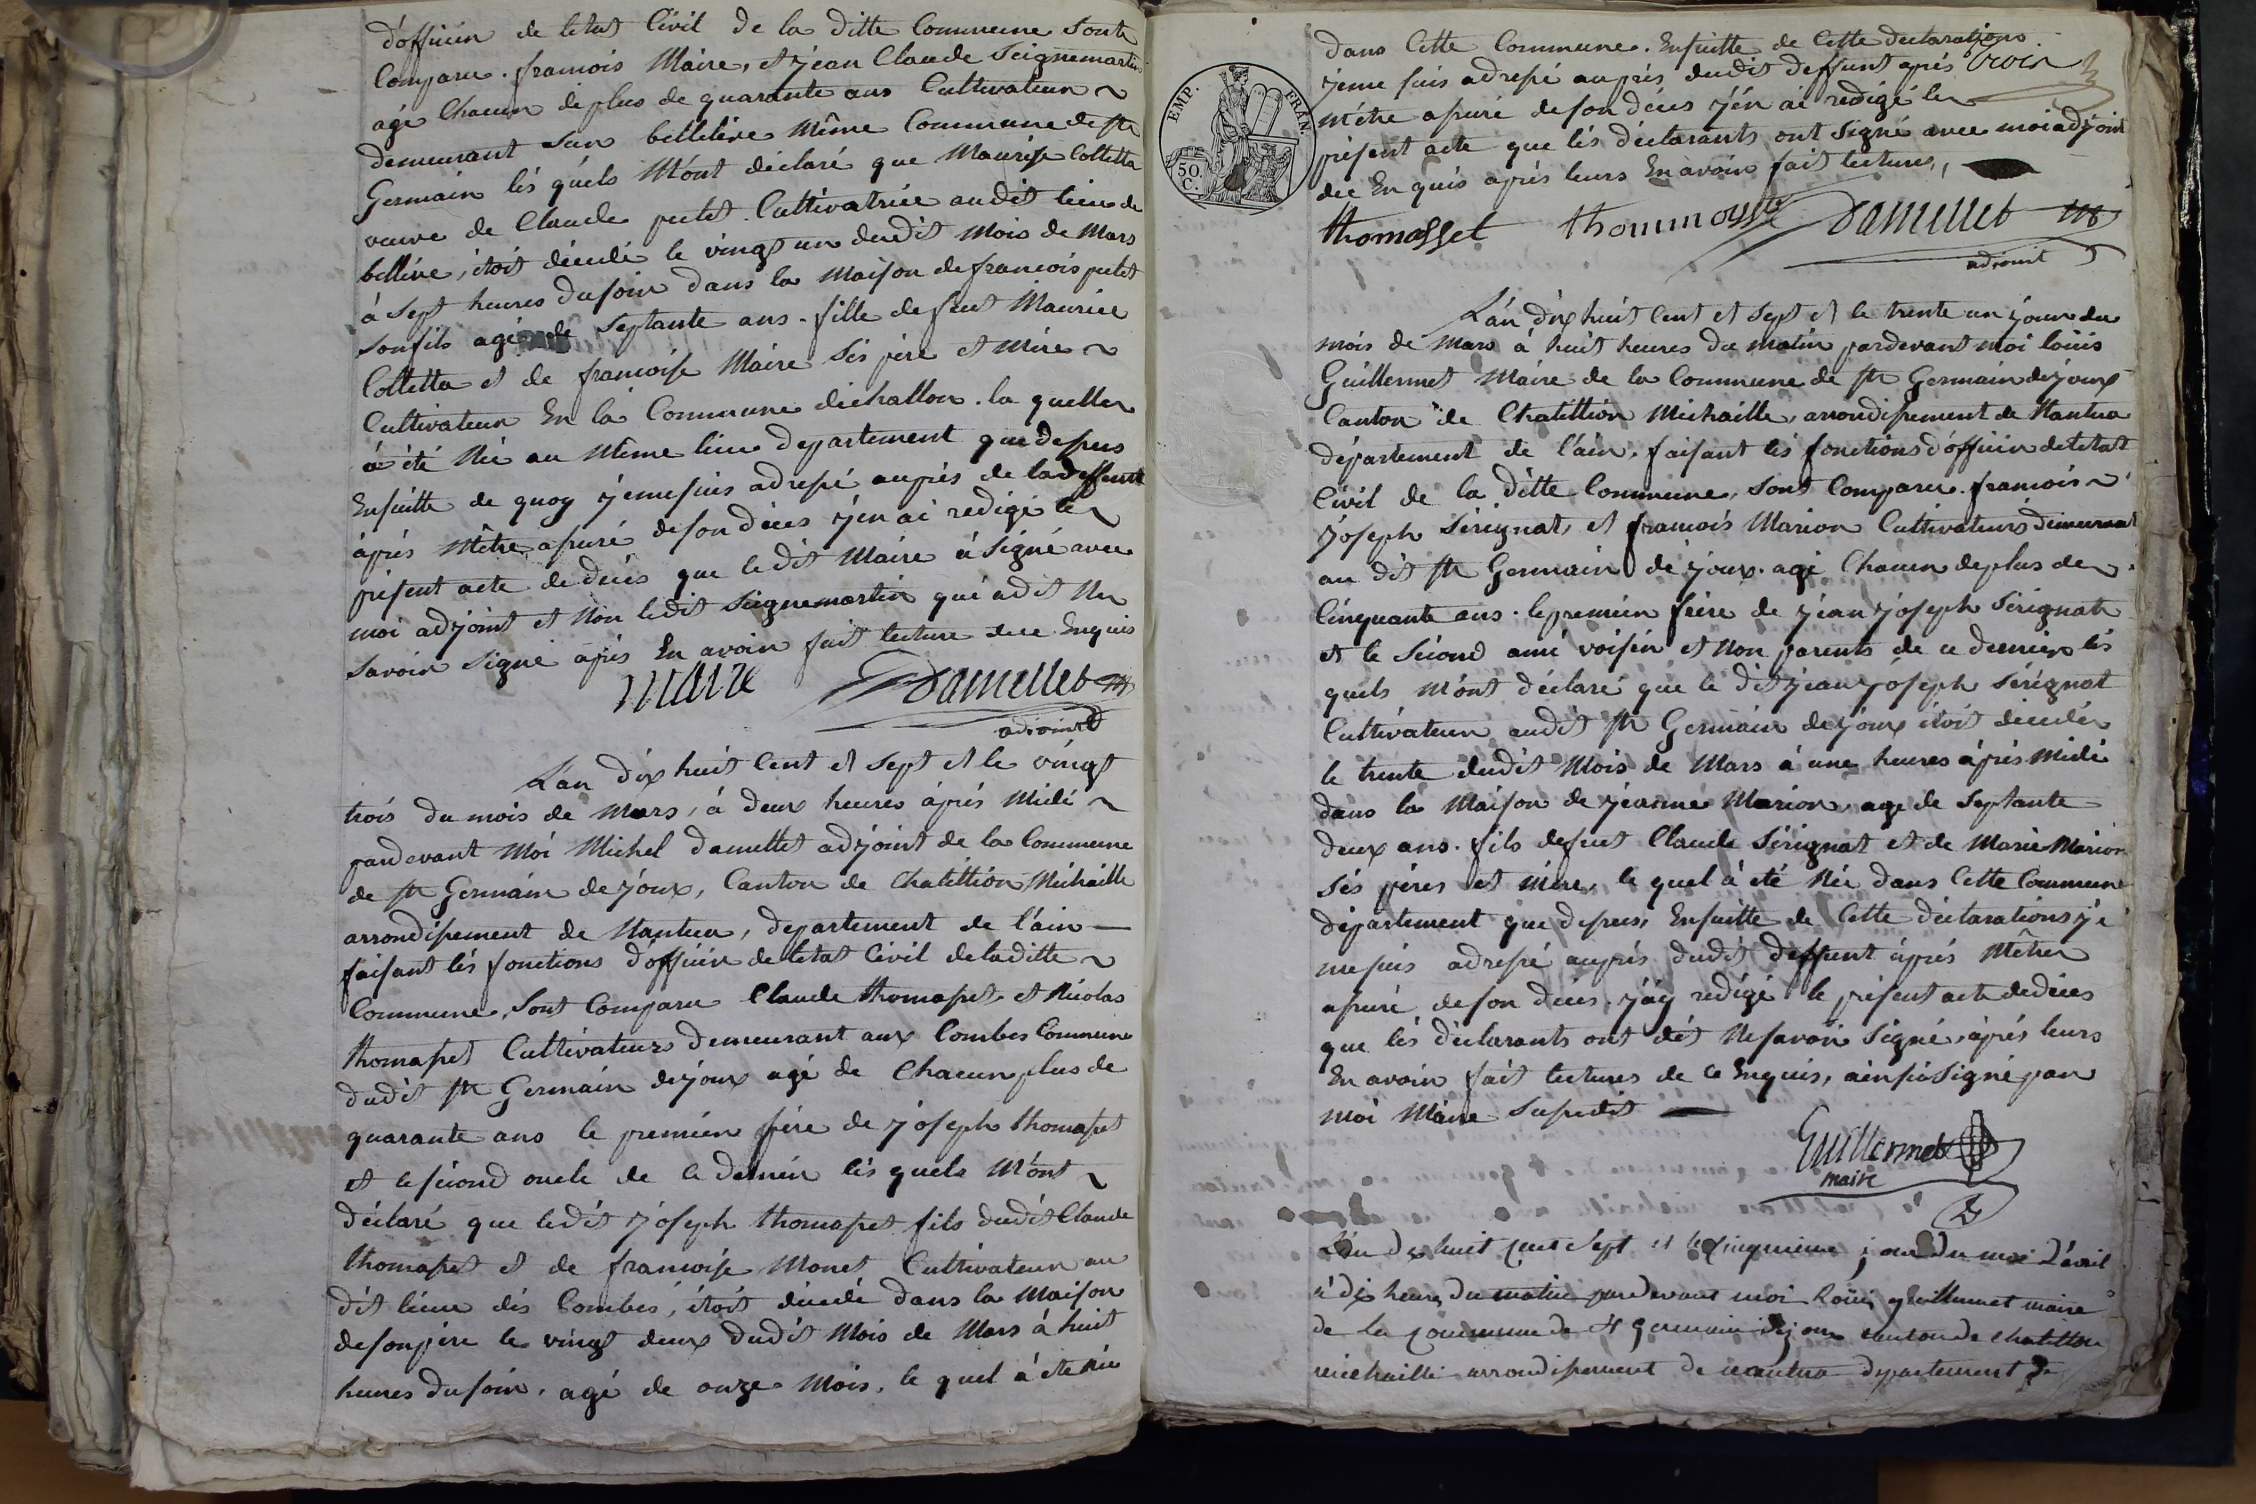 d'officier de letat Civil de la ditte Commune Sont
Comparu. francois Maire, et jean Claude Seignemartin
agé Chacun de plus de quarante ans Cultivateur
demeurant Sur bellelive Même Commune de st
Germain lés quéls M'ont déclaré que Maurise Colletta
veuve de Claude petet Cultivatrice audit lieu de
bellive, étoit décédé le vingt un dudit Mois de Mars
à Sept heures du soir dans la Maison de francois petet
son fils agé de Septante ans. fille de feut Maurice
Colletta et de francoise Maire Sés père et mère
Cultivateur En la Commune déchallon. la quelle
à été Née au Même lieu departement que dessus
Ensuitte de quoy j'eme suis adressé auprés de la deffunte
après M'être assuré de son déces j'en ai redigé le
présent acte de déces que ledit Maire à Signé avec
moi adjoint et Non ledit Seignemartin qui à dit Ne
Savoir Signé après En avoir fait lecture de ce Enquis
maire Damellet
adjoint
L'an dix huit Cent et Sept et le vingt
trois du mois de Mars, à deux heures après Midi
pardevant Moi Michel Damellet adjoint de la Commune
de st Germain de joux, Canton de Chatillion Michaille
arrondissement de Nantua, departement de l'ain
faisant lés fonctions d'officier de letat Civil de laditte
Commune, Sont Comparu Claude Thomasset et Nicolas
Thomasset Cultivateurs demeurant aux Combes Commune
dudit st Germain de joux agé de Chacun plus de
quarante ans le premiér père de joseph Thomasset
et le sécond oncle de ce dernier lés quels M'ont
déclaré que ledit joseph Thomasset fils dudit Claude
Thomasset et de francoise Monet Cultivateur au
dit lieu dés Combes, étoit décedé dans la Maison
de son père le vingt deux dudit Mois de Mars à huit
heures du soir, agé de onze Mois, le quel à été Née
EMP. FRAN.
50. C.
dans Cette Commune. Ensuitte de Cette declarations
j'eme suis adressé auprés dudit deffunt après
m'être assuré de son déces j'én ai redigé le
présent acte que lés déclarants ont Signé avec moi adjoint
de ce En quis après leurs En avoir fait lectures,
thomasset Damellet
adjoint
L'an dix huit Cent et Sept et le trente un jour du
mois de Mars à huit heures du matin pardevant moi loüis
Guillermet Maire de la Commune de st Germain de joux
Canton de Chatillion Michaille, arrondissement de Nantua
département de l'ain, faisant lés fonctions d'officier de letat
Civil de la ditte Commune, Sont Comparu. francois
joseph Sérignat, et francois Marion Cultivateurs demeurant
au dit st Germain de joux. agé Chacun de plus de
Cinquante ans. le premier frère de jean joseph Sérignat
et le Sécond ami voisin et Non parents de ce dernier lés
quels M'ont déclaré que le dit jean joseph Sérignat
Cultivateur audit st Germain de joux étoit décédé
le trente dudit Mois de Mars à une heures après Midi
dans la Maison de jeanne Marion, age de Septante
deux ans. fils de feut Claude Sérignat et de Marie Marion
Sés péres et mère, le quel à été Née dans Cette Commune
département que dessus, Ensuitte de Cette déclarations je
me suis adressé auprés dudit deffunt après M'être
assuré de son déces. j'ay redigé le présent acte de déces
que lés déclarants ont dit Ne savoir Signé, après leurs
En avoir fait lectures de Ce Enquis, ainsi Signé par
Moi Maire Susdit
Guillermet
maire
L'an dix huit cent Sept et le cinquieme jour du moi d'avril
à dix heures du matin pardevant moi Loüis guillermet maire
de la commune de st germain de joux canton de chatillon
michaille arrondissement de nantua departement de